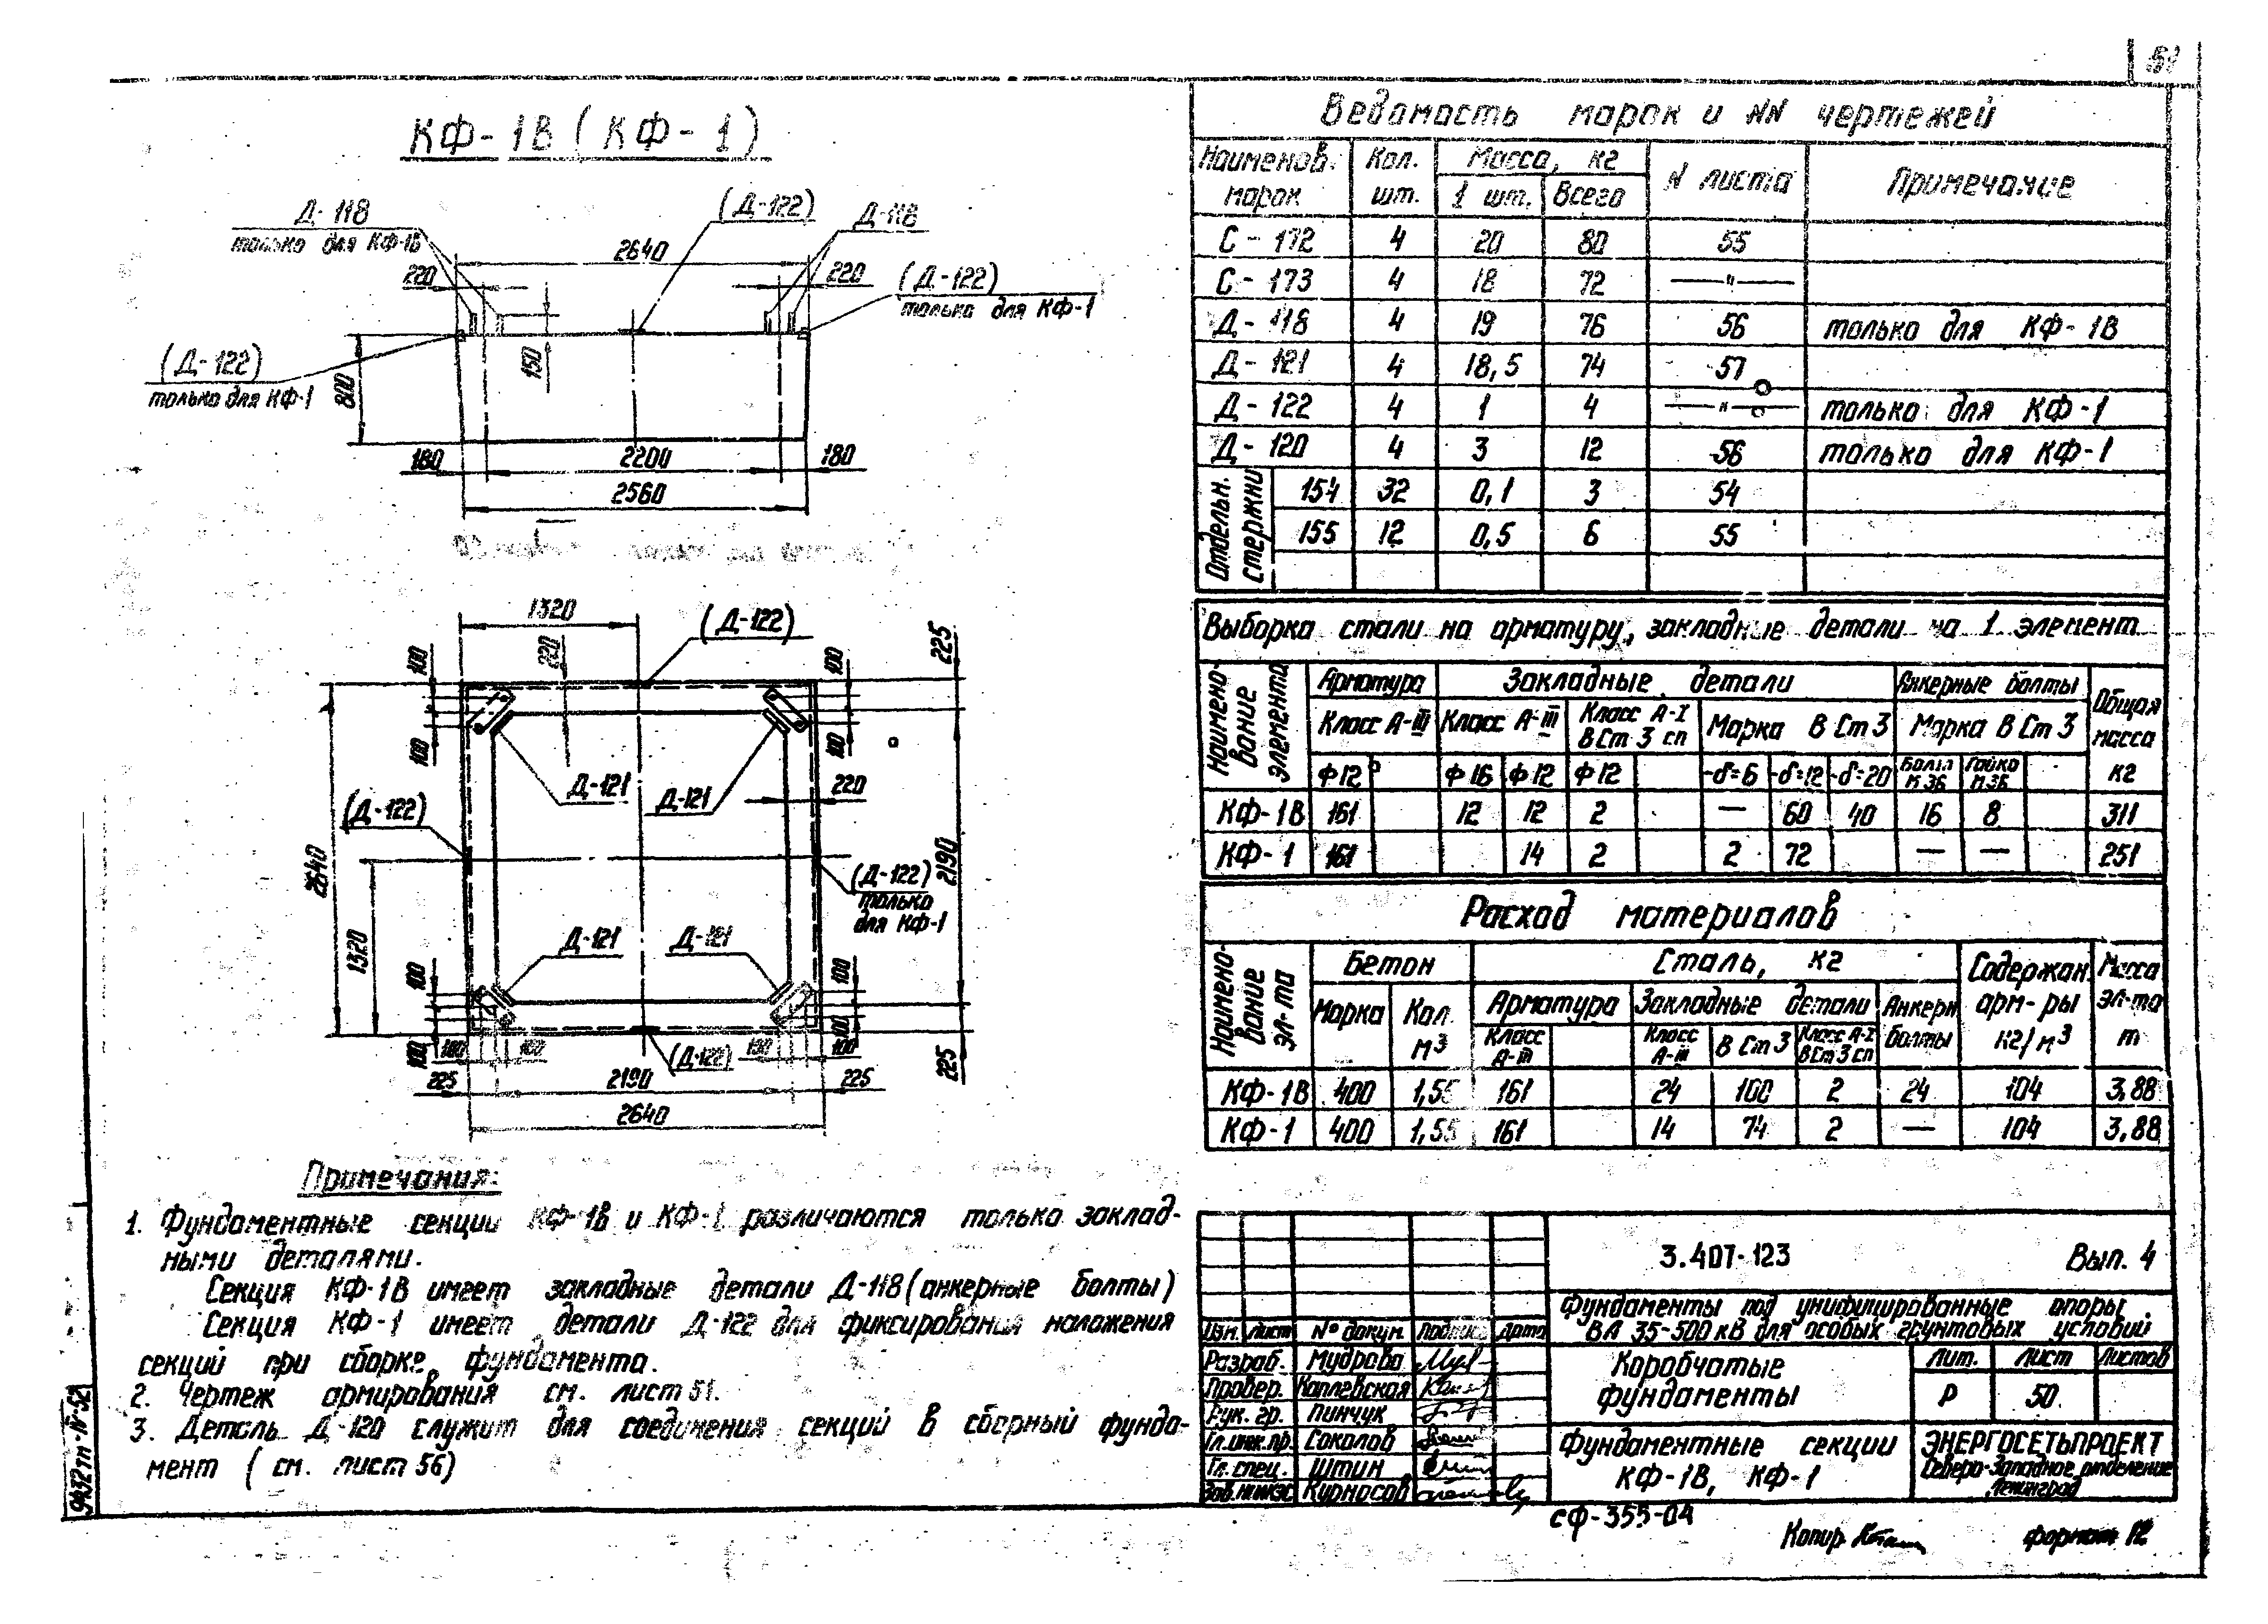 51
КФ-1В (КФ-1)
Д-118
только для КФ-1В
(Д-122)
Д-118
2640
220
220
(Д-122)
только для КФ-1
(Д-122)
только для КФ-1
800
150
180
2200
180
2560
1320
(Д-122)
225
100
220
100
100
100
Д-121
Д-121
220
(Д-122)
2640
2190
(Д-122)
только
для КФ-1
1320
Д-121
Д-121
100
100
100
100
100
100
(Д-122)
100
225
2190
225
225
2640
Примечания:
1. Фундаментные секции КФ-1В и КФ-1 различаются только заклад-
ными деталями.
Секция КФ-1В имеет закладные детали Д-118 (анкерные болты)
Секция КФ-1 имеет детали Д-122 для фиксирования наложения
секций при сборке фундамента.
2. Чертеж армирования см. лист 51.
3. Деталь Д-120 служит для соединения секций в сборный фунда-
мент (см. лист 56)
9432тм-IV-52
Ведомость марок и NN чертежей
Наименов. марок | Кол. шт. | Масса, кг | N листа | Примечание
1 шт. | Всего
С-172 4 20 80 55
С-173 4 18 72 —"—
Д-118 4 19 76 56 только для КФ-1В
Д-121 4 18,5 74 57
Д-122 4 1 4 —"— только для КФ-1
Д-120 4 3 12 56 только для КФ-1
Отдельн. стержни
154 32 0,1 3 54
155 12 0,5 6 55
Выборка стали на арматуру, закладные детали на 1 элемент
Наимено-вание элемента | Арматура | Закладные детали | Анкерные болты | Общая масса кг
Класс А-III | Класс А-III | Класс А-I ВСт 3 сп | Марка В Ст 3 | Марка В Ст 3
Ф12 Ф16 Ф12 Ф12 -δ=6 -δ=12 -δ=20 Болт М36 Гайка М36
КФ-1В 161 12 12 2 — 60 40 16 8 311
КФ-1 161 14 2 2 72 — — 251
Расход материалов
Наимено-вание эл-та | Бетон | Сталь, кг | Содержан. арм-ры кг/м³ | Масса эл-та т
Марка | Кол. м³ | Арматура | Закладные детали | Анкерн. болты
Класс А-III | Класс А-III | В Ст 3 | Класс А-I ВСт 3 сп
КФ-1В 400 1,55 161 24 100 2 24 104 3,88
КФ-1 400 1,55 161 14 74 2 — 104 3,88
3.407-123 Вып. 4
Фундаменты под унифицированные опоры
ВЛ 35-500 кВ для особых грунтовых условий
Изм. Лист № докум. Подпись Дата
Разраб. Мудрова
Провер. Каплевская
Рук. гр. Пинчук
Гл.инж.пр. Соколов
Гл. спец. Штин
Курносов
Коробчатые
фундаменты
Лит. Лист Листов
Р 50
Фундаментные секции
КФ-1В, КФ-1
ЭНЕРГОСЕТЬПРОЕКТ
Северо-Западное отделение
Ленинград
сф-355-04
Копир.
формат 12